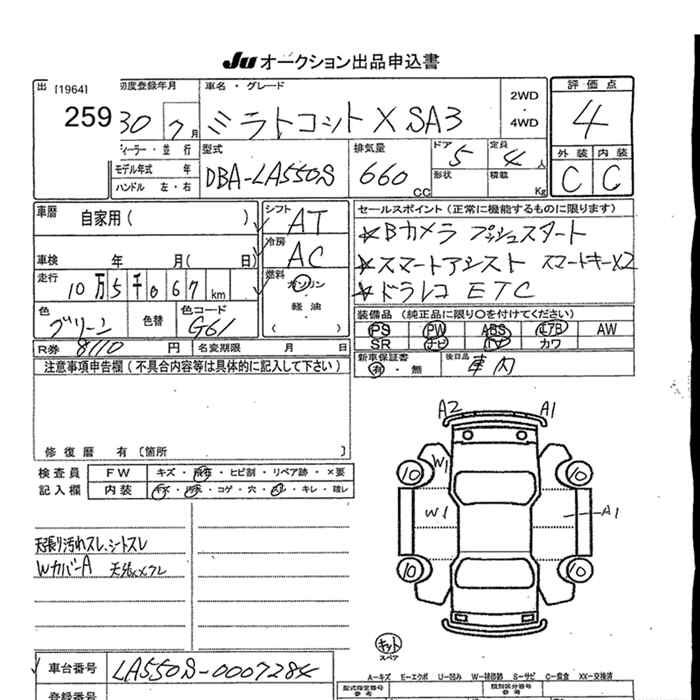 Ju オークション出品申込書
出 [1964] 初度登録年月 車名・グレード 2WD・4WD 評価点
259 30 7月 ミラトコット X SA3 4
ディーラー・並行 型式 排気量 ドア 5 定員 4人 外装 内装
モデル年式 年 DBA-LA550S 660CC 形状 積載 Kg C C
ハンドル 左・右
車歴 自家用( ) シフト AT セールスポイント(正常に機能するものに限ります)
冷房 AC ☆Bカメラ プッシュスタート
車検 年 月( 日) ☆スマートアシスト スマートキーX2
走行 10万5千067km 燃料 ガソリン・軽油( ) ☆ドラレコ ETC
色 グリーン 色替 色コード G61 装備品(純正品に限り○を付けてください)
PS PW ABS エアB AW
R券 8110円 名変期限 月 日 SR ナビ TV カワ
注意事項申告欄(不具合内容等は具体的に記入して下さい) 新車保証書 有・無 後日品 車内
修復歴 有〔箇所 〕
A2 A1
検査員 FW キズ・飛石・ヒビ割・リペア跡・×要
記入欄 内装 キズ・汚れ・コゲ・穴・スレ・キレ・破レ
W1 10 10
W1 A1
10 10
天張り汚れスレ、シートスレ
WカバーA
キット
スペア
車台番号 LA550S-0007284
A-キズ E-エクボ U-凹み W-補修跡 S-サビ C-腐食 XX-交換済
登録番号 型式指定番号 参考 類別区分番号 参考